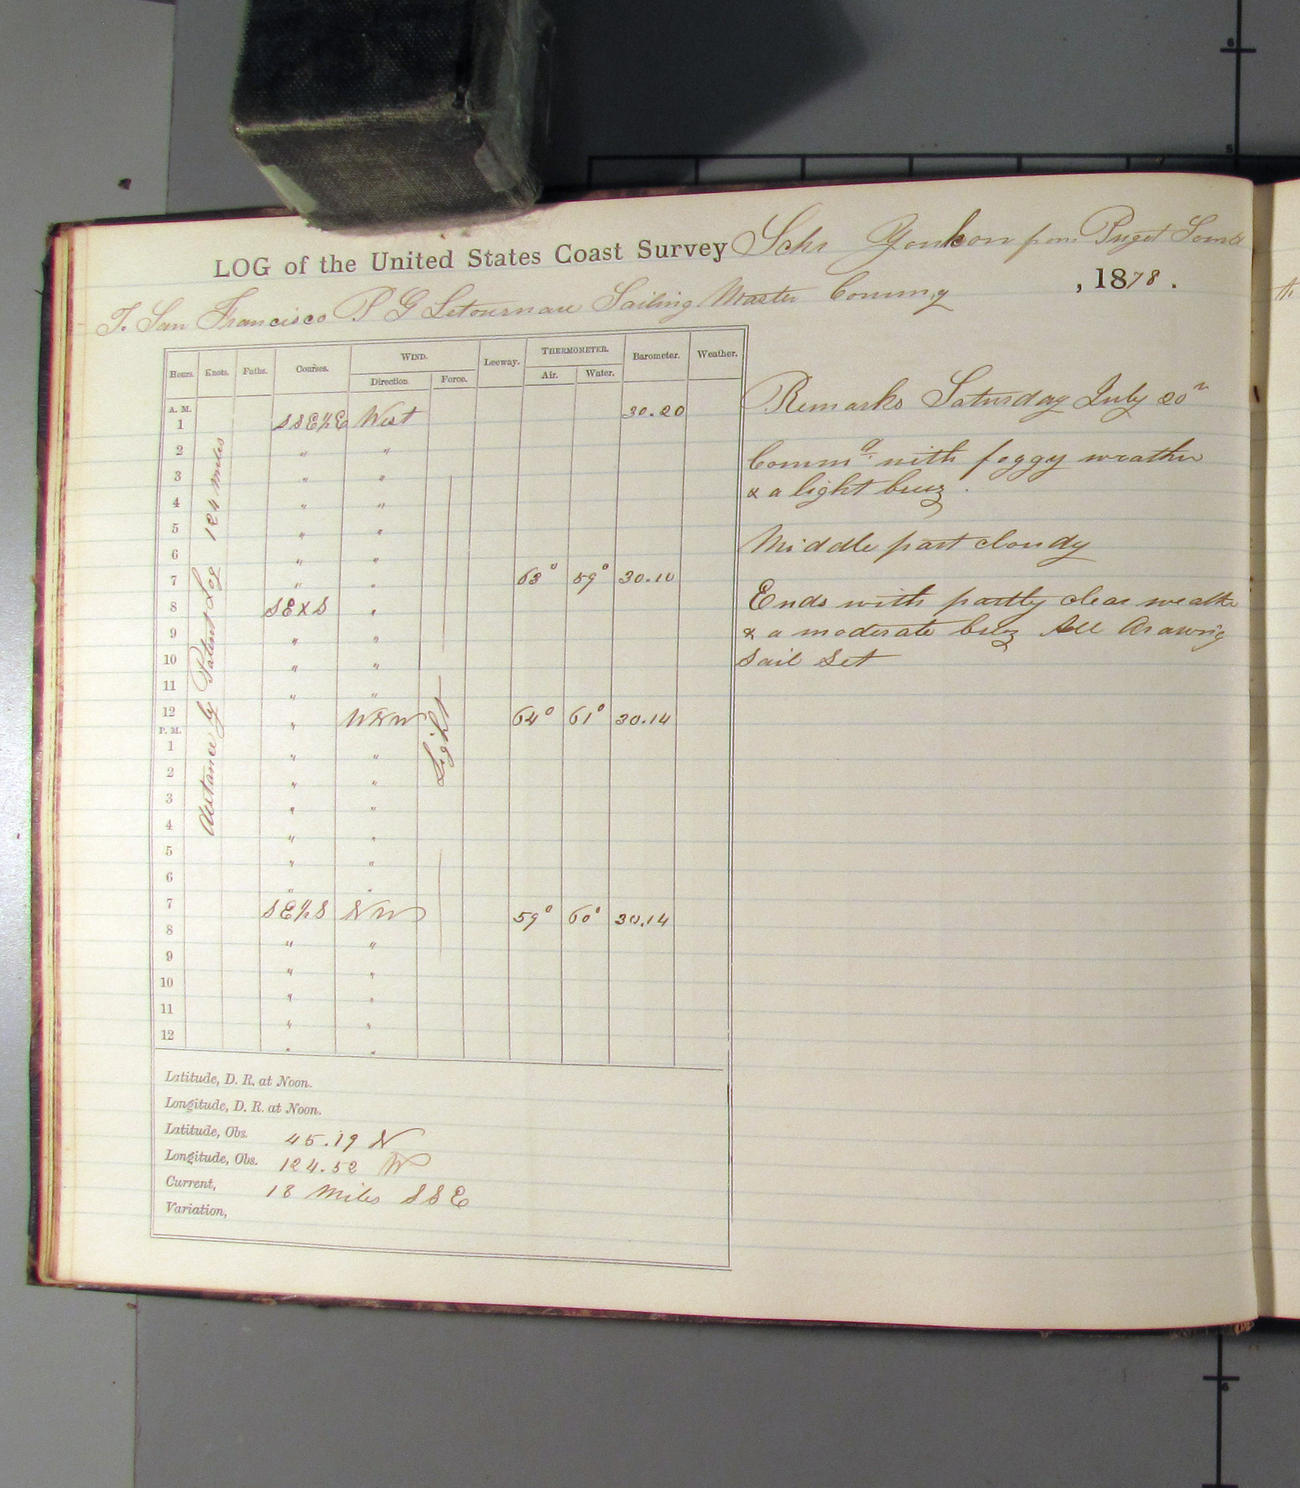 LOG of the United States Coast Survey Schr Yonkon from Puget Sound
To San Francisco P G Letournau Sailing Master Comm'g , 1878.
Hours. Knots. Faths. Courses. WIND. Leeway. THERMOMETER. Barometer. Weather.
Direction. Force. Air. Water.
Distance by Patent Log 124 miles
Light
A. M.
1 SSE½E West 30.20
2 " "
3 " "
4 " "
5 " "
6 " "
7 " " 63° 59° 30.10
8 SEXS "
9 " "
10 " "
11 " "
12 " WNW 64° 61° 30.14
P. M.
1 " "
2 " "
3 " "
4 " "
5 " "
6 " "
7 SE½S NW 59° 60° 30.14
8 " "
9 " "
10 " "
11 " "
12 " "
Latitude, D. R. at Noon.
Longitude, D. R. at Noon.
Latitude, Obs. 45.19 N
Longitude, Obs. 124.52 W
Current, 18 Miles SSE
Variation,
Remarks Saturday July 20th
Commd with foggy weather
& a light breez.
Middle part cloudy
Ends with partly clear weather
& a moderate breez All Drawing
Sail Set
5
6